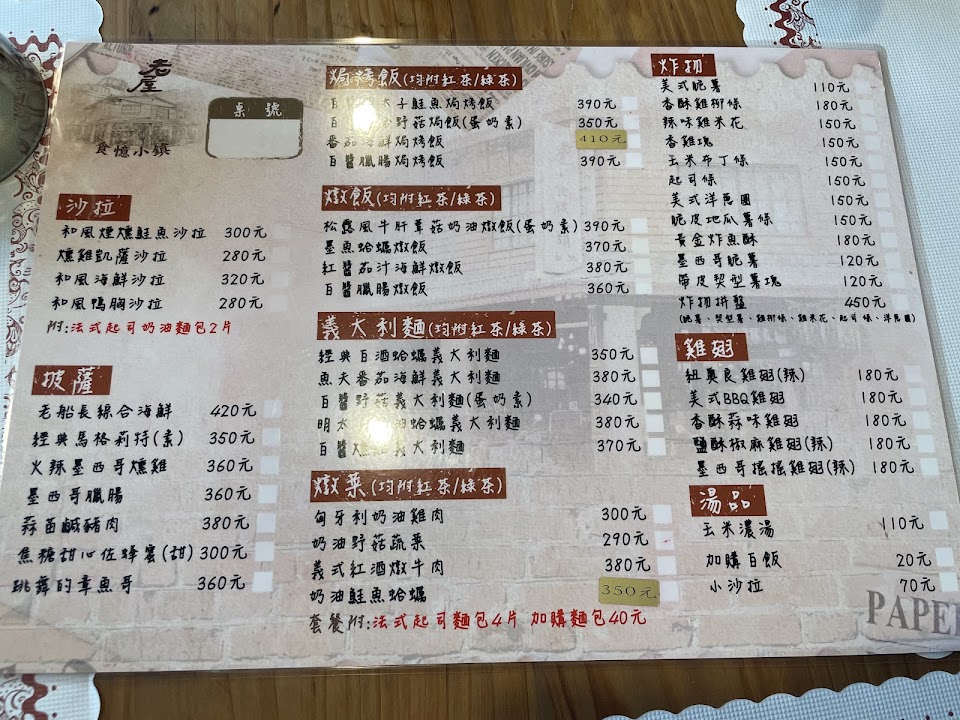 老屋
食憶小鎮
桌號
沙拉
和風煙燻鮭魚沙拉 300元
燻雞凱薩沙拉 280元
和風海鮮沙拉 320元
和風鴨胸沙拉 280元
附:法式起司奶油麵包2片
披薩
老船長綜合海鮮 420元
經典馬格莉特(素) 350元
火辣墨西哥燻雞 360元
墨西哥臘腸 360元
蒜苗鹹豬肉 380元
焦糖甜心佐蜂蜜(甜) 300元
跳舞的章魚哥 360元
焗烤飯(均附紅茶/綠茶)
子鮭魚焗烤飯 390元
野菇焗飯(蛋奶素) 350元
番茄海鮮焗烤飯 410元
白醬臘腸焗烤飯 390元
燉飯(均附紅茶/綠茶)
松露風牛肝蕈菇奶油燉飯(蛋奶素) 390元
墨魚蛤蠣燉飯 370元
紅醬茄汁海鮮燉飯 380元
白醬臘腸燉飯 360元
義大利麵(均附紅茶/綠茶)
經典白酒蛤蠣義大利麵 350元
魚夫番茄海鮮義大利麵 380元
白醬野菇義大利麵(蛋奶素) 340元
明太 油蛤蠣義大利麵 380元
白醬燻 義大利麵 370元
燉菜(均附紅茶/綠茶)
匈牙利奶油雞肉 300元
奶油野菇蔬菜 290元
義式紅酒燉牛肉 380元
奶油鮭魚蛤蠣 350元
套餐附:法式起司麵包4片 加購麵包40元
炸物
美式脆薯 110元
香酥雞柳條 180元
辣味雞米花 150元
香雞塊 150元
玉米布丁條 150元
起司條 150元
美式洋蔥圈 150元
脆皮地瓜薯條 150元
黃金炸魚酥 180元
墨西哥脆薯 120元
帶皮契型薯塊 120元
炸物拼盤 450元
(脆薯、契型薯、雞柳條、雞米花、起司條、洋蔥圈)
雞翅
紐奧良雞翅(辣) 180元
美式BBQ雞翅 180元
香酥蒜味雞翅 180元
鹽酥椒麻雞翅(辣) 180元
墨西哥搖搖雞翅(辣) 180元
湯品
玉米濃湯 110元
加購白飯 20元
小沙拉 70元
PAPE